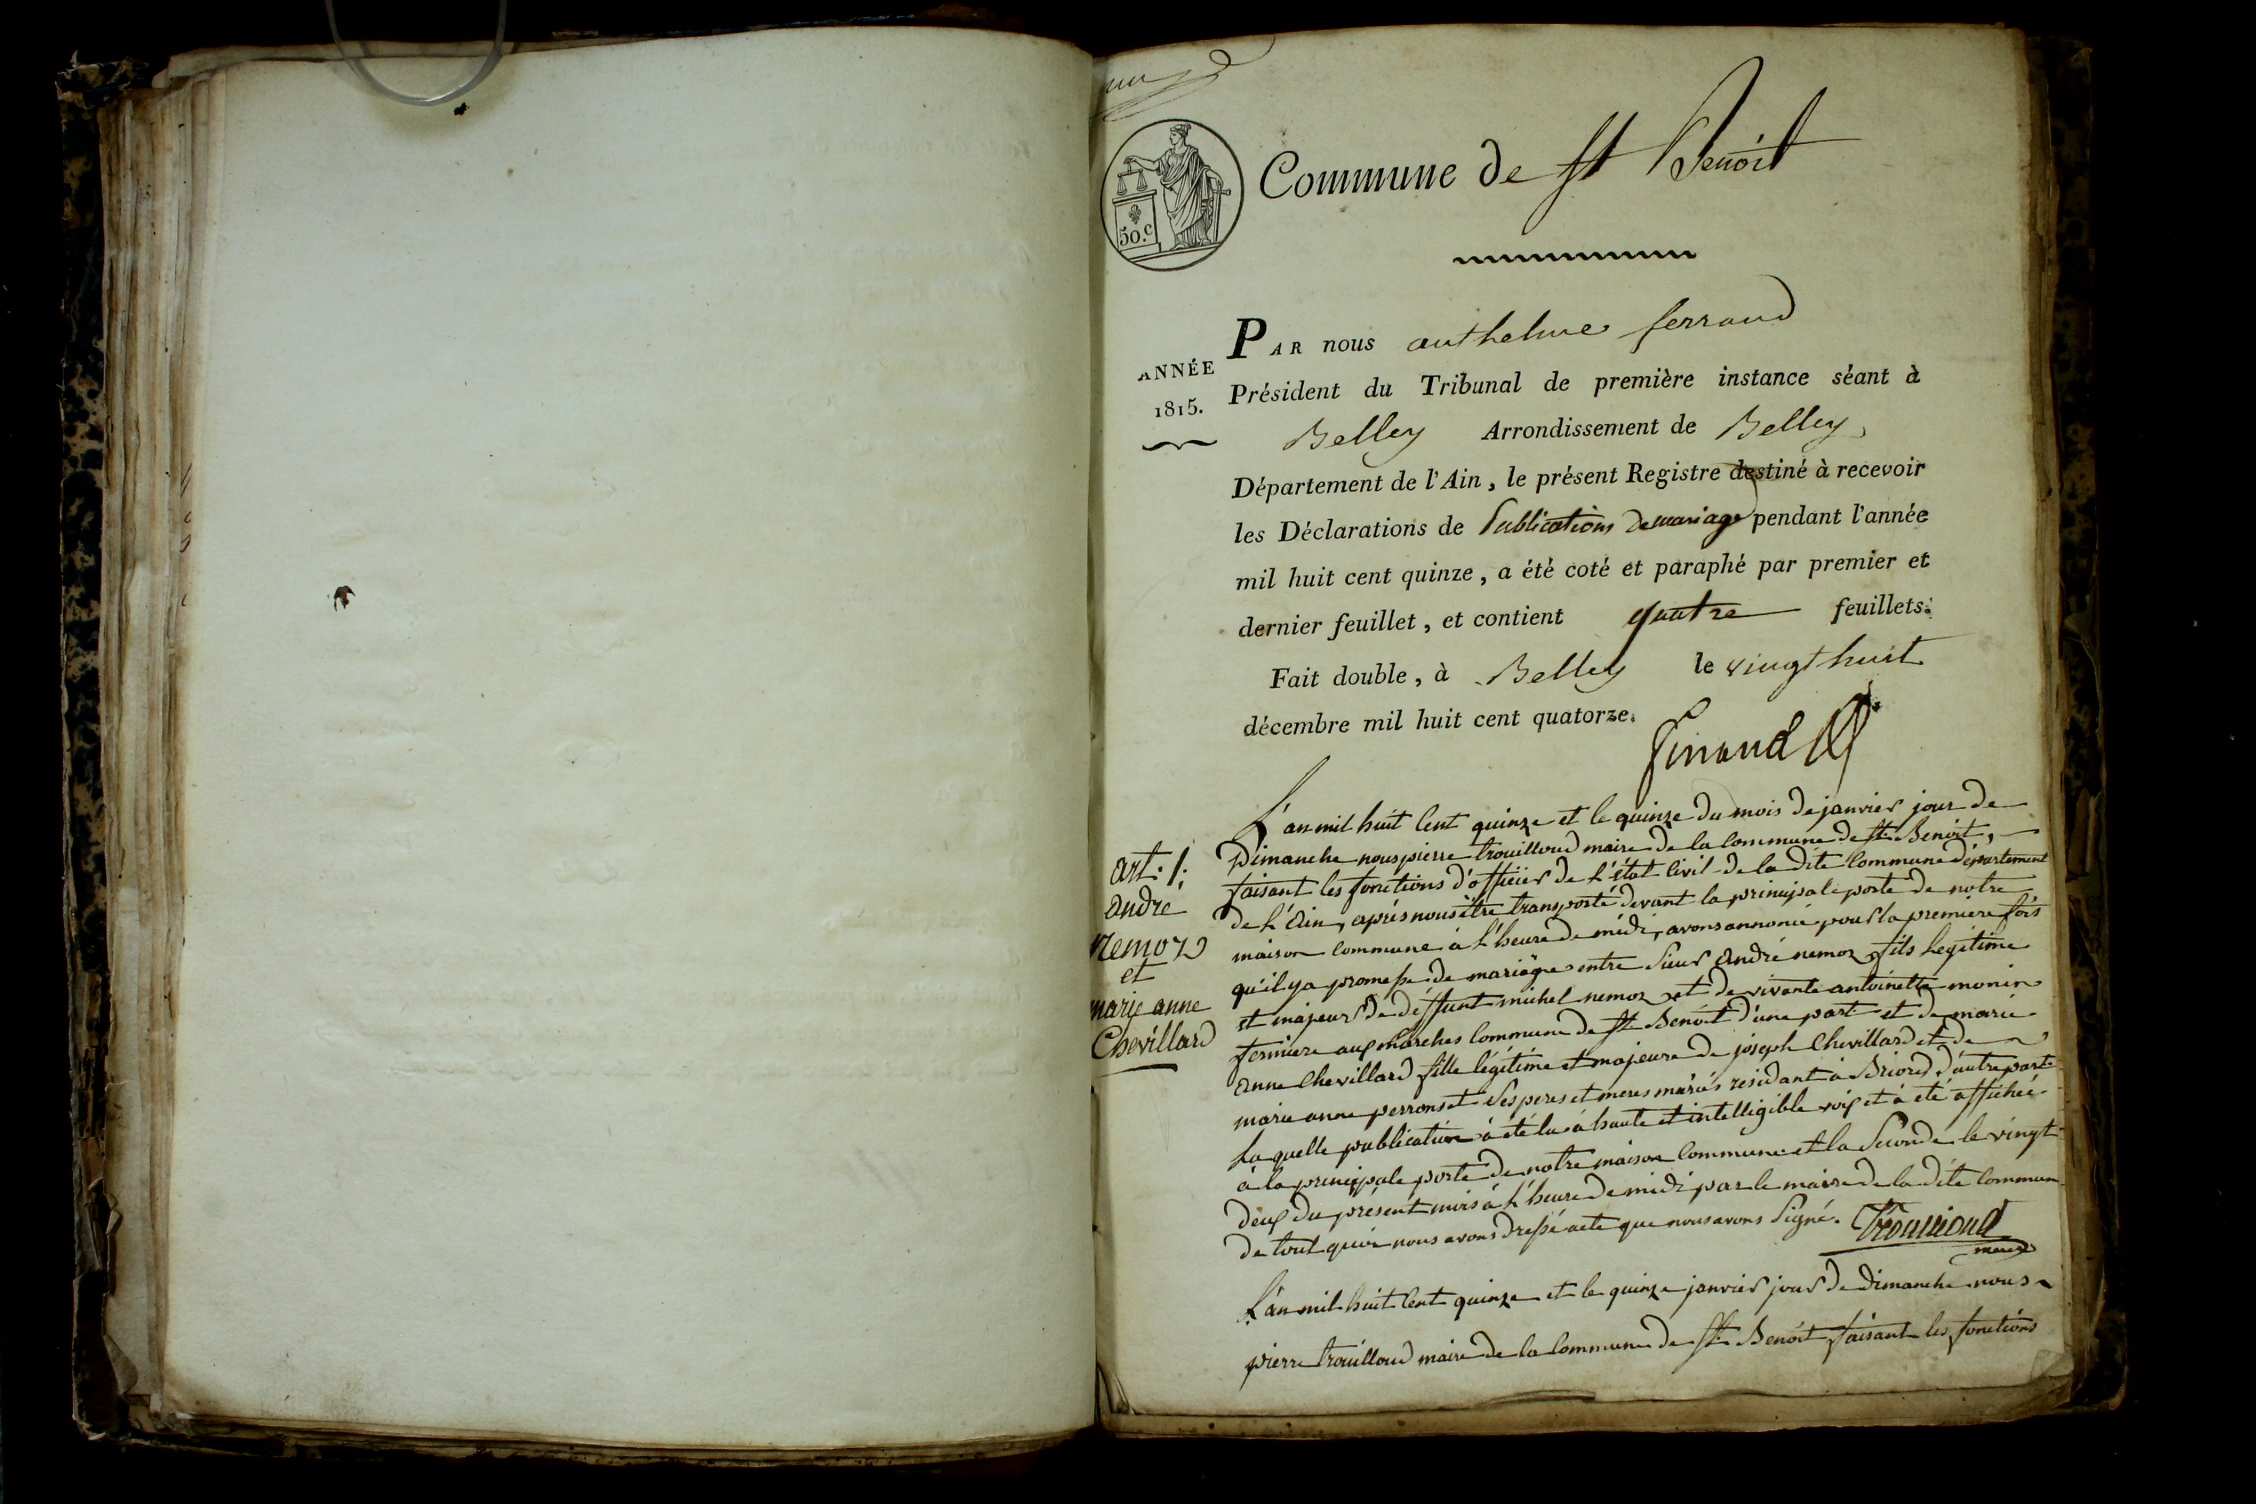 Commune de St Benoit
50.c
ANNÉE
1815.
PAR nous anthelme ferrand
Président du Tribunal de première instance séant à
Belley Arrondissement de Belley,
Département de l'Ain, le présent Registre destiné à recevoir
les Déclarations de Publications de mariage pendant l'année
mil huit cent quinze, a été coté et paraphé par premier et
dernier feuillet, et contient quatre feuillets.
Fait double, à Belley le vingt huit
décembre mil huit cent quatorze.
art. 1.
andré
nemoz
et
marie anne
Chevillard
L'an mil huit Cent quinze et le quinze du mois de janvier jour de
Dimanche nous pierre trouilloud maire de la Commune de St Benoit,
faisant les fonctions d'officier de l'état Civil de la dite Commune département
de l'Ain, après nous être transporté devant la principale porte de notre
maison commune à l'heure de midi, avons annoncé pour la premiere fois
qu'il y a promesse de mariage entre Sieur André nemoz fils legitime
et majeur de déffunt michel nemoz et de vivante antoinette monin
fermiere aux marches Commune de St Benoit d'une part et de marie
anne Chevillard fille légitime et majeure de joseph Chevillard et de
marie anne perronet Ses peres et meres mariés résidant à Briord d'autre part
Laquelle publication à été lu à haute et intelligible voix et à été affichée
à la principale porte de notre maison Commune et la Seconde le vingt
deux du présent mois à l'heure de midi par le maire de la dite Commune
de tout quoi nous avons dressé acte que nous avons Signé. Trouilloud
maire
L'an mil huit Cent quinze et le quinze janvier jour de dimanche nous
pierre trouilloud maire de la Commune de St Benoit faisant les fonctions